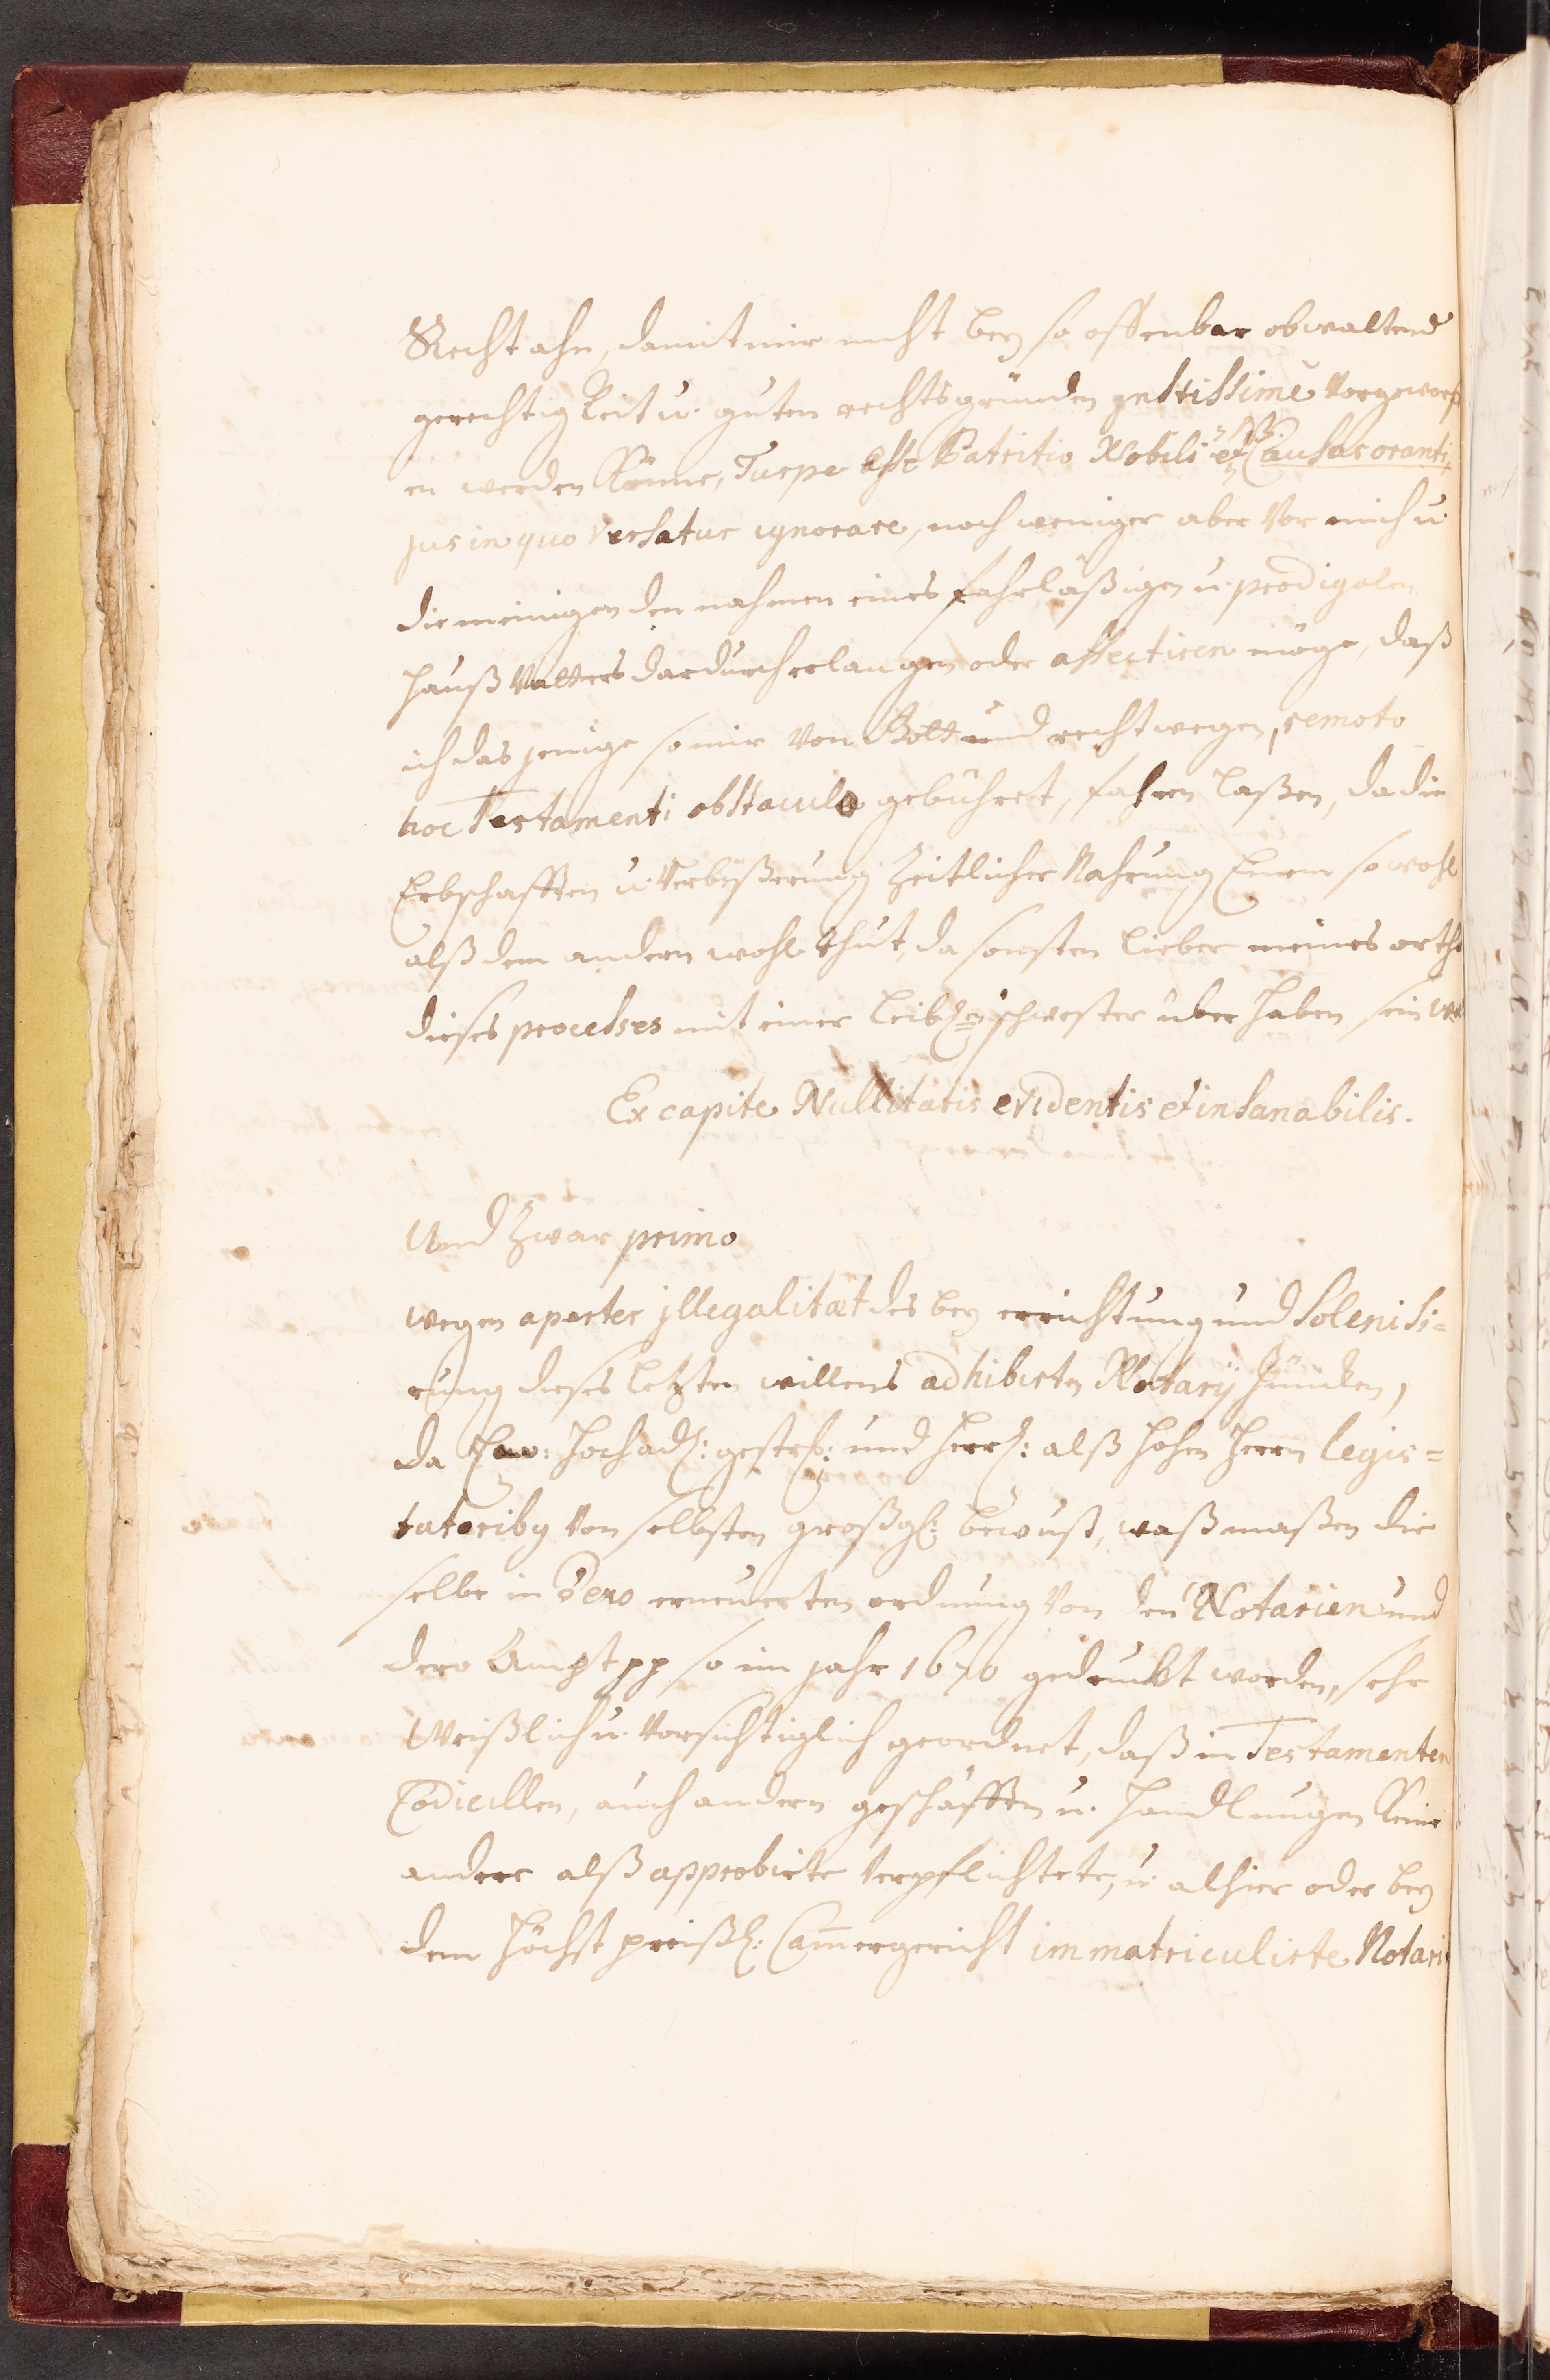 Recht ahn, damit mir nicht bey so offenbar obwaltend
gerechtigkeit u. guten rechtsgründen justissime vorgeworff
en werden könne, Turpe esse Patritio Nobili et Causas oranti,
jus in quo versatur ignorare, noch weniger aber vor mich u.
die meinigen den nahmen eines fahrläßigen u. prodigalen
Hauß Vatters dardurch erlangen oder affectiren möge, daß
ich das jenige so mir von Gott und recht wegen, remoto
hoc Testamenti obstaculo gebühret, fahren laßen, da die
Erbschafften u. Verbeßerung Zeitlicher Nahrung Einem so wohl
alß dem andern wohl thut, da sonsten lieber meines orths
dieses processes mit einer leibl. schwester über haben sein
Ex capite Nullitatis evidentis et insanabilis.
Und Zwar primo
wegen aperter jllegalitæt des bey errichtung und Solenisi=
rung dieses letzten willens adhibirten Notarij Hüncken,
da Ew: Hochad: gestr: und Herrl: alß hohen Herrn legis=
latoribus von selbsten großgl: bewust, waß maßen die
selbe in Dero erneuerten ordnung von den Notarien und
dero Ampt pp so im jahr 1670 gedruckt worden, sehr
Weißlich u. vorsichtiglich geordnet, daß in Testamenten
Codicillen, auch andern geschäfften u. Handlungen Keine
andere alß approbirte verpflichtete, u. alhier oder bey
dem Höchst preißl: Cam̅ergericht immatriculirte Notarii